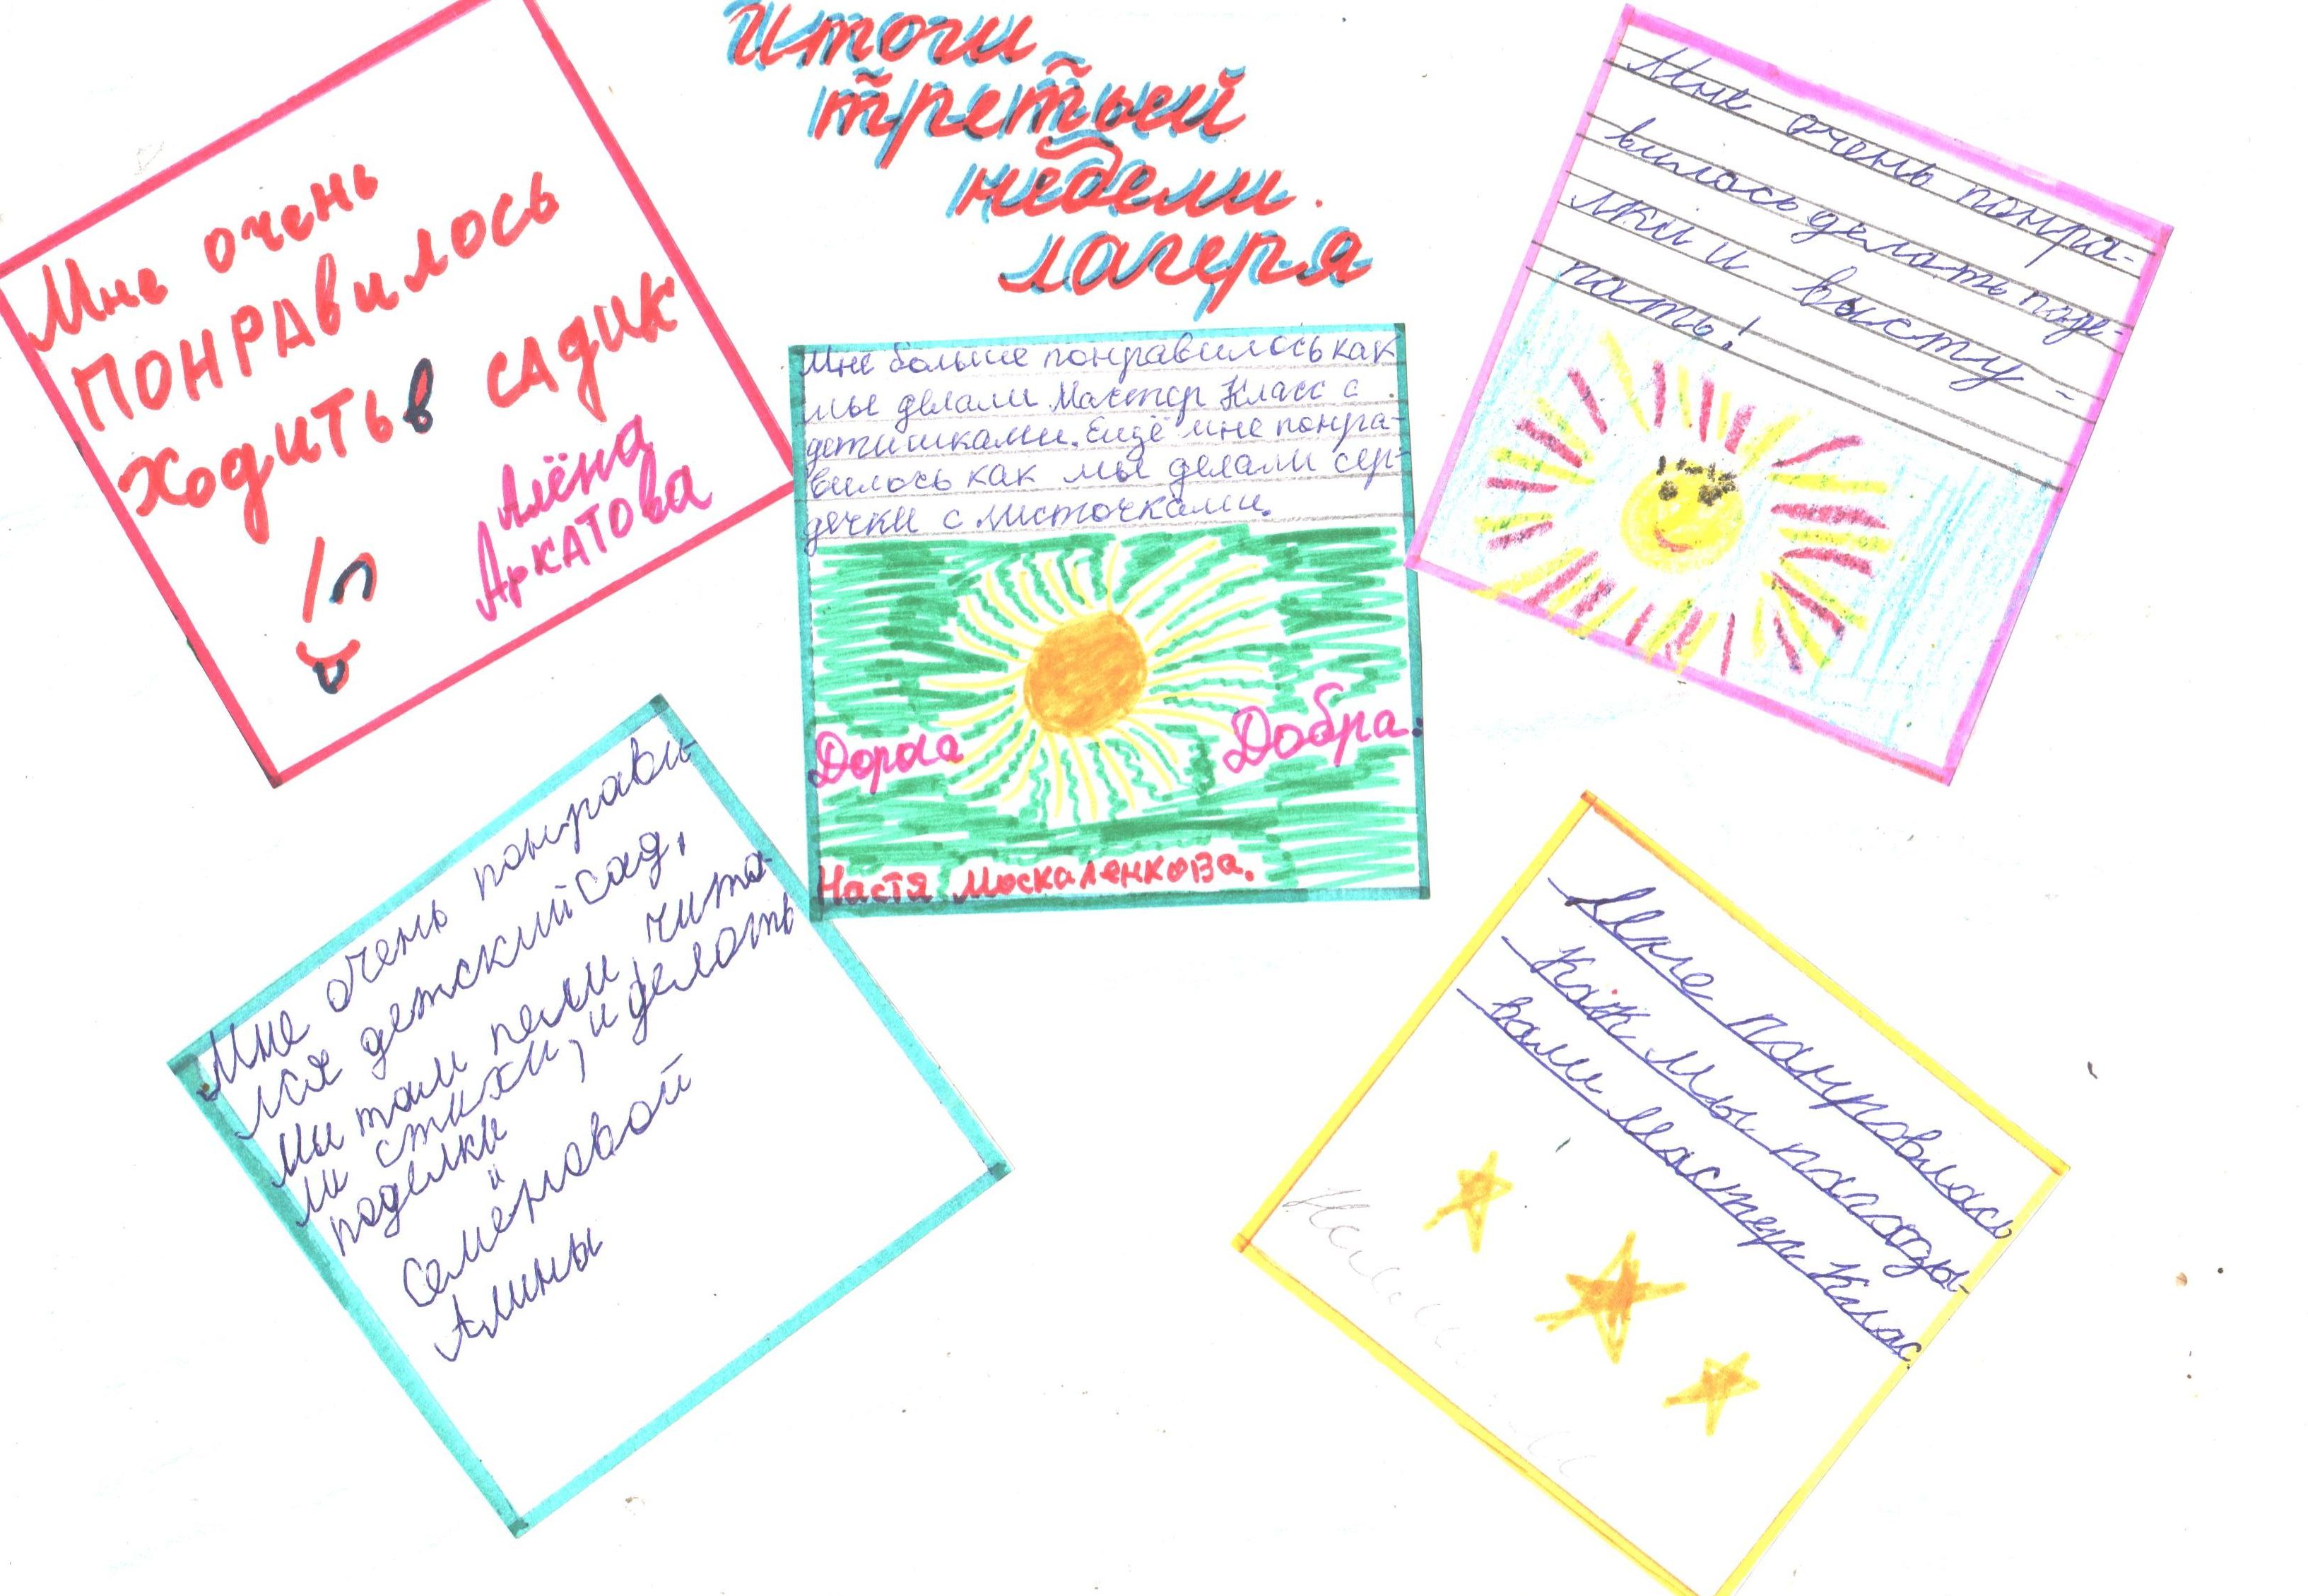 Итоги
третьей
недели.
лагеря
Мне очень
понравилось
ходить в садик
Алёна
Аркатова
Мне больше понравилось как
мы делали Мастер Класс с
детишками. Ещё мне понра-
вилось как мы делали сер-
дечки с листочками.
Добра:
Настя Москаленкова.
Мне очень понра-
вилось делать поде-
лки и высту-
пать!
Мне очень понрави-
лся детский сад,
Мы там пели, чита-
ли стихи, и делать
поделки
Семёновой
Алины
Мне понравилось
Как мы
вали Мастер Клас.